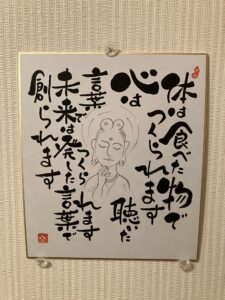 体は食べた物で
つくられます
心は聴いた
言葉でつくられます
未来は発した言葉で
創られます